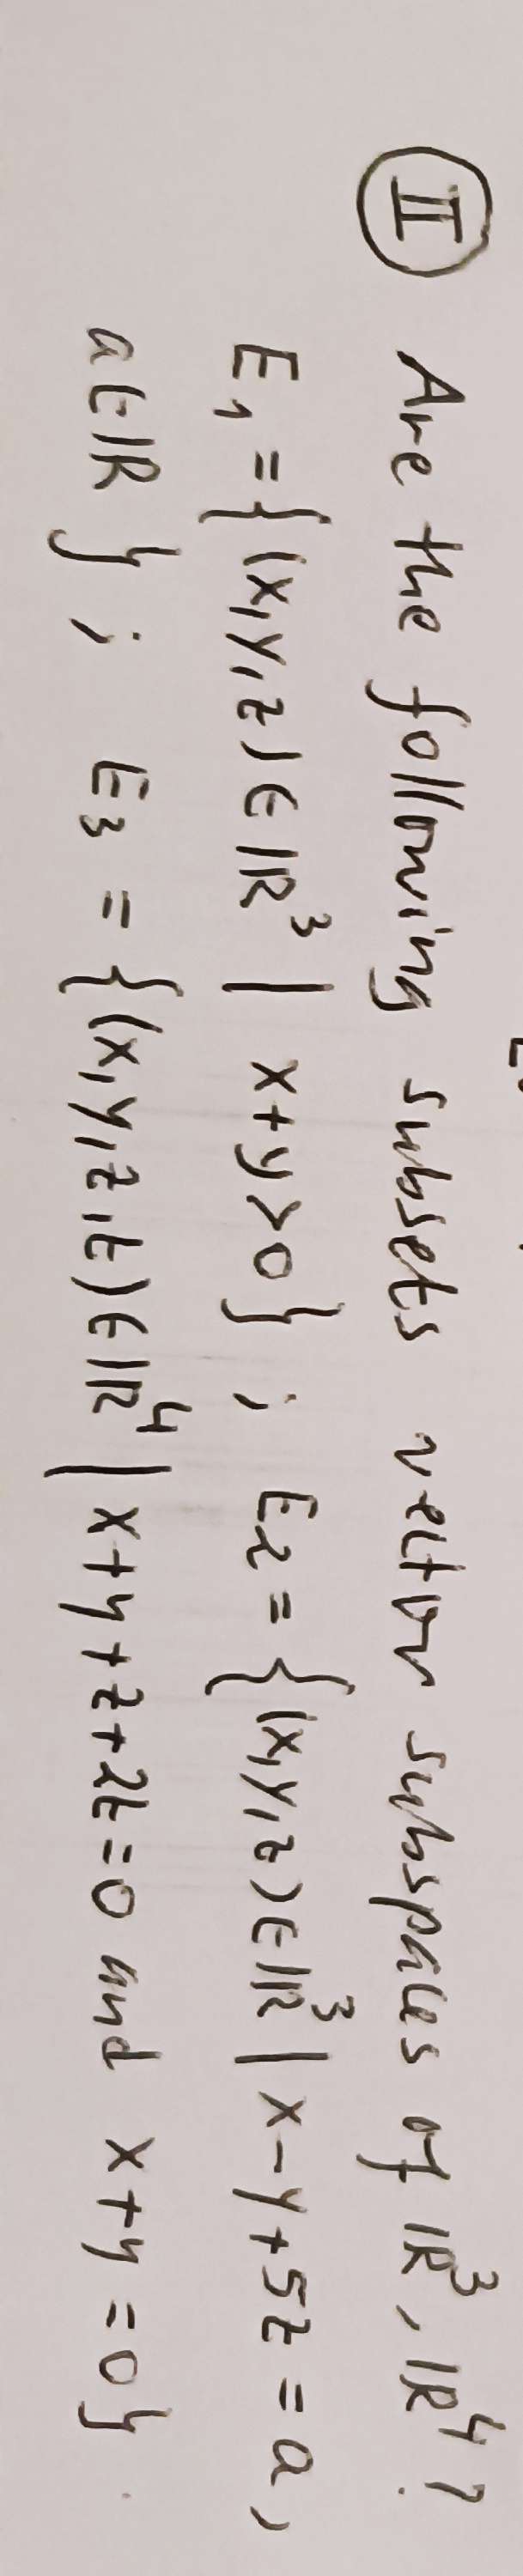 II Are the following subsets vector subspaces of ℝ³, ℝ⁴?
E₁ = {(x,y,z) ∈ ℝ³ | x+y>0} ; E₂ = {(x,y,z) ∈ ℝ³ | x-y+5z = a,
a ∈ ℝ} ; E₃ = {(x,y,z,t) ∈ ℝ⁴ | x+y+z+2t=0 and x+y=0}.